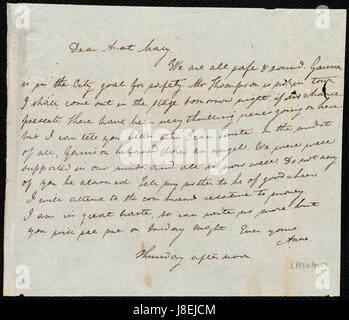 Dear Aunt Mary,
We are all safe & sound. Garrison
is in the City goal for safety. Mr Thompson is not in town
I shall come out in the stage tomorrow night, if
presents. There have been very thrilling scenes going on here
but I can tell you better than I can write. In the midst
of all, Garrison behaved like an angel. We were well
supported in our minds and all is now well. Do not any
of you be alarmed. Tell my mother to be of good cheer
I will attend to the command relative to money
I am in great haste, so can write no more but
you will see me on Friday night. Ever yours
Anne.
Thursday afternoon
a alamy stock photo
alamy
Image ID: J8EJCM
www.alamy.com